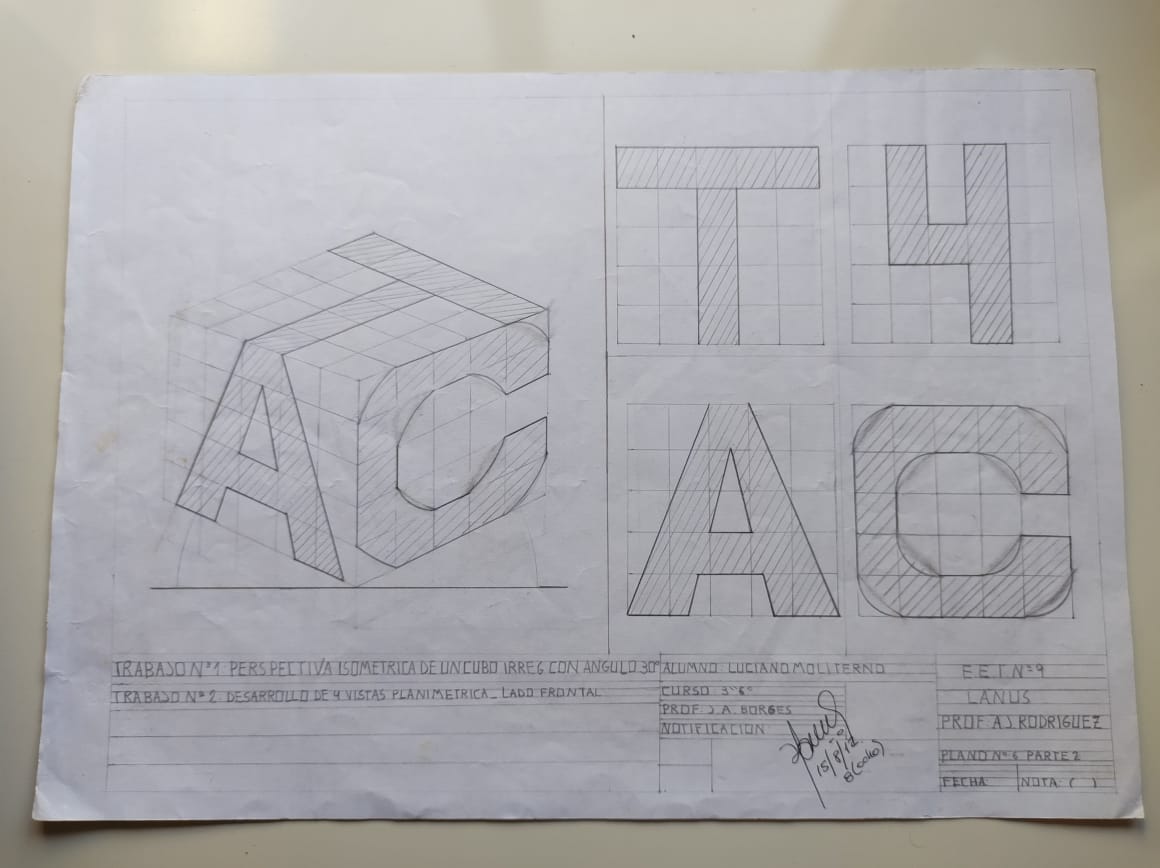 T
4
A
C
A
C
TRABAJO Nº1 PERSPECTIVA ISOMETRICA DE UN CUBO IRREG CON ANGULO 30º
TRABAJO Nº 2. DESARROLLO DE 4 VISTAS PLANIMETRICA_ LADO FRONTAL
ALUMNO: LUCIANO MOLITERNO
CURSO: 3º6º
PROF: J.A. BORGES
NOTIFICACION
15/8/12
8 (ocho)
E.E.T Nº9
LANUS
PROF. A.J. RODRIGUEZ
PLANO Nº6 PARTE 2
FECHA
NOTA: ( )